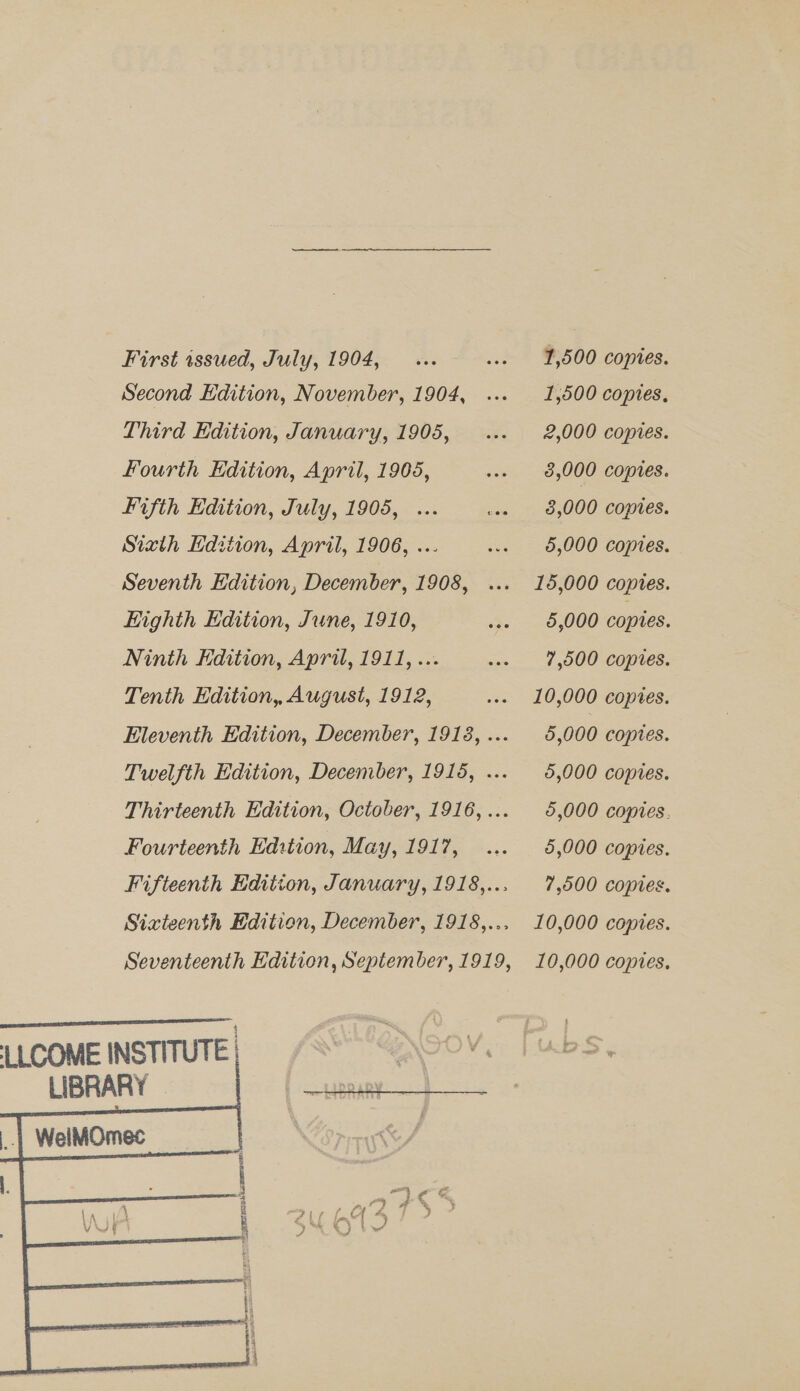 First issued, July, 1904, ... ... 1,500 copies.
Second Edition, November, 1904, ... 1,500 copies.
Third Edition, January, 1905, ... 2,000 copies.
Fourth Edition, April, 1905, ... 3,000 copies.
Fifth Edition, July, 1905, ... ... 3,000 copies.
Sixth Edition, April, 1906, ... ... 5,000 copies.
Seventh Edition, December, 1908, ... 15,000 copies.
Eighth Edition, June, 1910, ... 5,000 copies.
Ninth Edition, April, 1911, ... ... 7,500 copies.
Tenth Edition,, August, 1912, ... 10,000 copies.
Eleventh Edition, December, 1913, ... 5,000 copies.
Twelfth Edition, December, 1915, ... 5,000 copies.
Thirteenth Edition, October, 1916, ... 5,000 copies.
Fourteenth Edition, May, 1917, ... 5,000 copies.
Fifteenth Edition, January, 1918,... 7,500 copies.
Sixteenth Edition, December, 1918,... 10,000 copies.
Seventeenth Edition, September, 1919, 10,000 copies.
LLCOME INSTITUTE
LIBRARY
WelMOmec
WA
Gov. Pubs.
LIBRARY
34693755